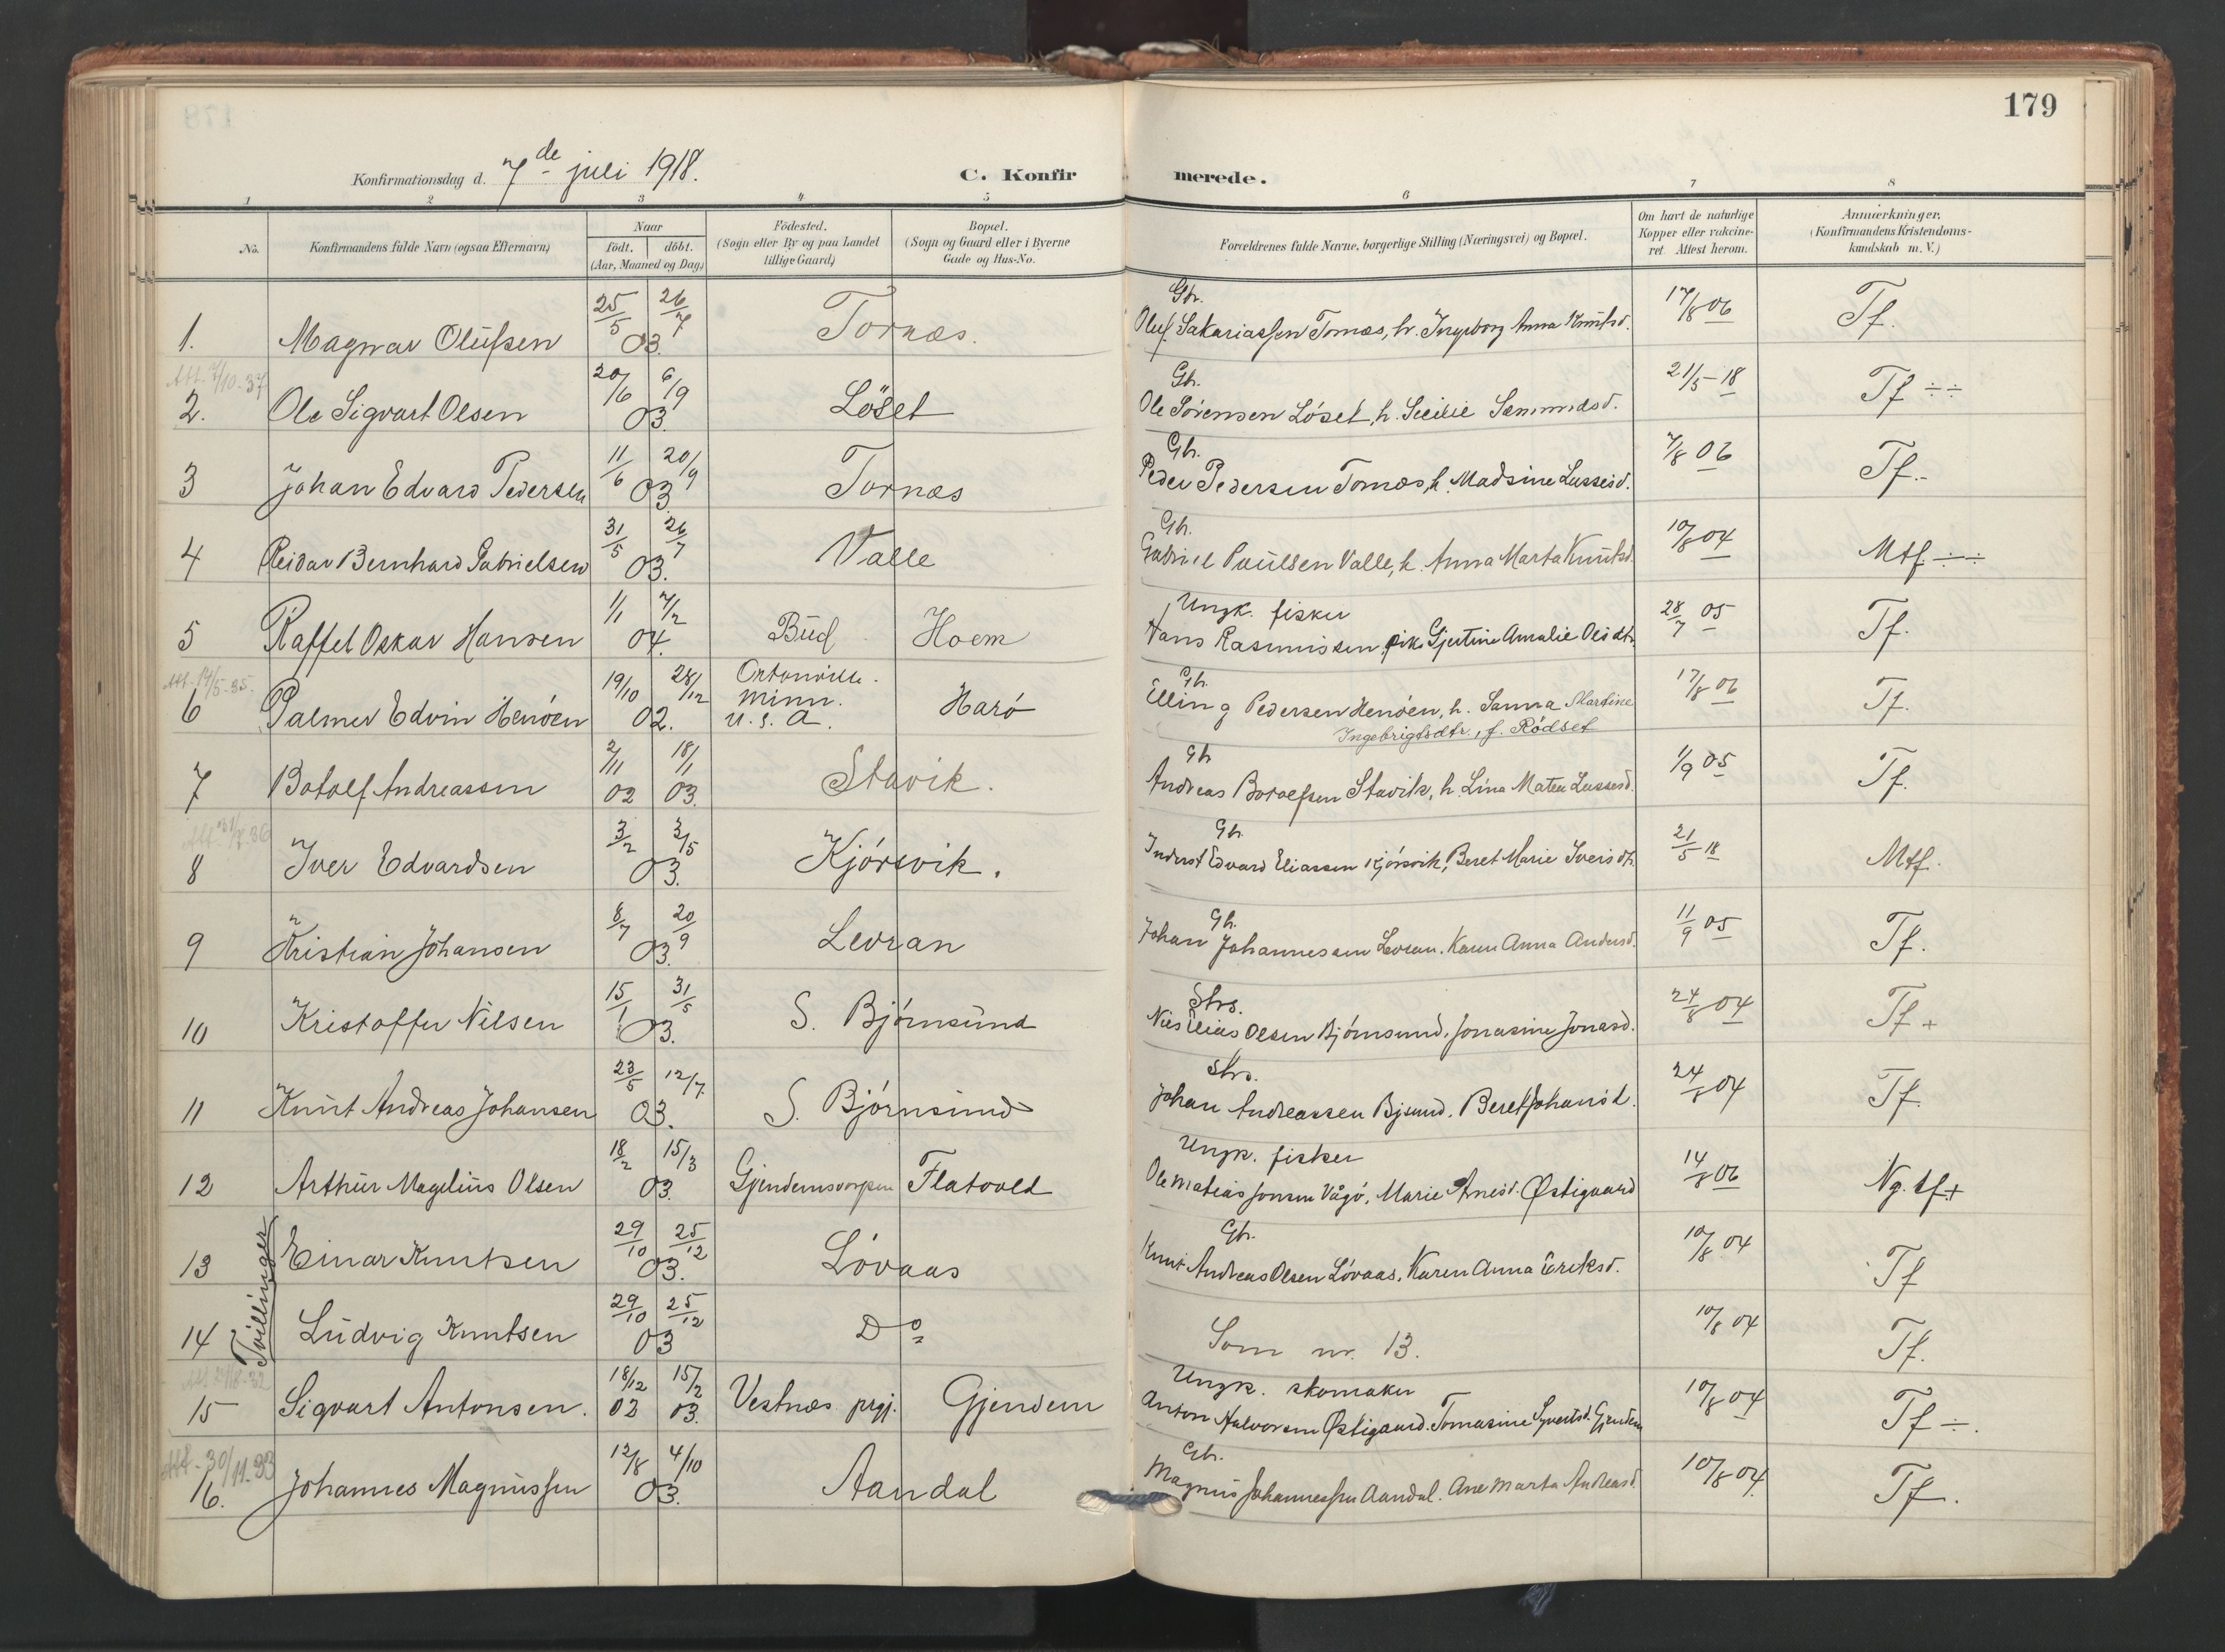 179
Konfirmationsdag d. 7de juli 1918. C. Konfirmerede.
1 2 3 4 5 6 7 8
No. Konfirmandens fulde Navn (ogsaa Efternavn) Naar födt. döbt. (Aar, Maaned og Dag) Födested. (Sogn eller By og paa Landet tillige Gaard) Bopæl. (Sogn og Gaard eller i Byerne Gade og Hus-No. Forældrenes fulde Navne, borgerlige Stilling (Næringsvei) og Bopæl. Om havt de naturlige Kopper eller vakcineret. Attest herom. Anmærkninger. (Konfirmandens Kristendomskundskab m. V.)
1. Magnar Olufsen 25/5 26/7 03. Tornæs. Gbr. Oluf Sakariassen Tornæs, h. Ingeborg Anna Knutsd. 17/8 06 Tf.
2. Ole Sigvart Olsen 20/6 6/9 03. Löset Gb. Ole Sörensen Löset, h. Secilie Sæmundsd. 21/5-18 Tf ÷÷
3 Johan Edvard Pedersen 11/6 20/9 03 Tornæs Gbr. Peder Pedersen Tornæs, h. Madsine Lassesd. 7/8 06 Tf.-
4 Reidar Bernhard Gabrielsen 31/5 26/7 03. Valle Gb. Gabriel Paulsen Valle, h. Anna Marta Knutsd. 10/8 04 Mtf ÷÷
5 Raffel Oskar Hansen 1/1 7/2 04. Bud Hoem Ungk. fisker Hans Rasmussen, pike Gjertine Amalie Olsdtr. 28/7 05 Tf.
Att. 14/5-35.
6 Palmer Edvin Henöen 19/10 28/12 02. Ortonville. Minn. U.S.A. Harö Gb. Elling Pedersen Henöen, h. Sanna Martine Ingebrigtsdtr., f. Rödset 17/8 06 Tf.
7 Botolf Andreassen 2/11 02 18/1 03. Stavik. Gb Andreas Botolfsen Stavik, h. Lina Matea Lassesd. 11/9 05 Tf.
8 Iver Edvardsen 3/2 3/5 03. Kjörsvik. Gb. Inderst Edvard Eliassen Kjörsvik, Beret Marie Iversdtr. 21/5 18 Mtf.
9 Kristian Johansen 8/7 20/9 03. Levran Gb. Johan Johannessen Levran. Karen Anna Andersd. 11/9 05 Tf.
10 Kristoffer Nilsen 15/1 31/5 03. S. Björnsund Strs. Nils Elias Olsen Björnsund, Jonasine Jonasd. 24/8 04 Tf +
11 Knut Andreas Johansen 23/5 12/7 03. S. Björnsund Strs. Johan Andreassen Bjsund. Beret Johansd. 24/8 04 Tf.
12 Arthur Magelius Olsen 18/2 15/3 03. Flatvold Ungk. fisker Ole Mateas Jonsen Vågö, Marie Anesd. Østigaard 14/8 06 Ng. tf +
Tvillinger
13 Einar Knutsen 29/10 25/12 03. Lövaas Gb. Knut Andreas Olsen Lövaas, Karen Anna Eriksd. 10/8 04 Tf
14 Ludvig Knutsen 29/10 25/12 03 Do Som nr. 13. 10/8 04 Tf.
15 Sigvart Antonsen. 18/12 02 15/2 03. Vestnæs prgj. Gjendem Ungk. skomaker Anton Halvorsen Østigaard. Tomasine Syvertsd. Gjendem 10/8 04 Tf ÷.
Att. 30/11-33
16. Johannes Magnussen 12/8 4/10 03. Aandal Gbr. Magnus Johannessen Aandal. Ane Marta Andreasd. 10/8 04. Tf.